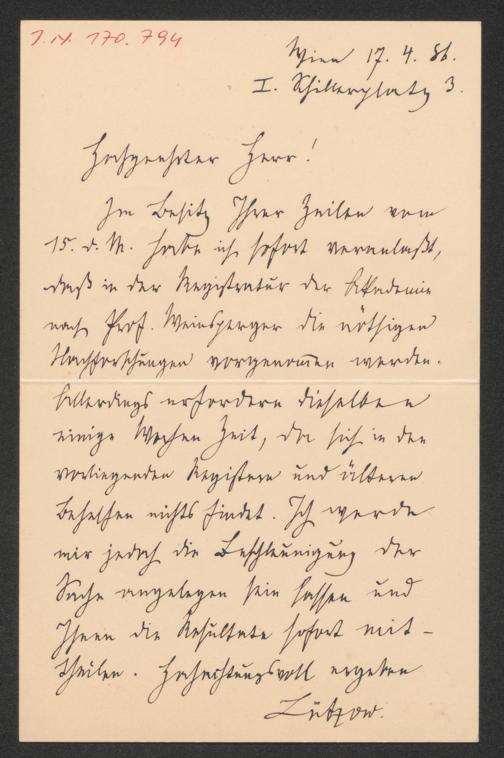 J.N. 170.794
Wien 17. 4. 86.
I. Schillerplatz 3.
Hochgeehrter Herr!
Im Besitz Ihrer Zeilen vom
15. d. M. habe ich sofort veranlaßt,
daß in der Registratur der Akademie
nach Prof. die nöthigen
Nachforschungen vorgenom̄en werden.
Allerdings erfordern dieselben
einige Wochen Zeit, da sich in den
vorliegenden Registern und älteren
Behelfen nichts findet. Ich werde
mir jedoch die Beschleunigung der
Sache angelegen sein lassen und
Ihnen die Resultate sofort mit-
theilen. Hochachtungsvoll ergeben
Lützow.